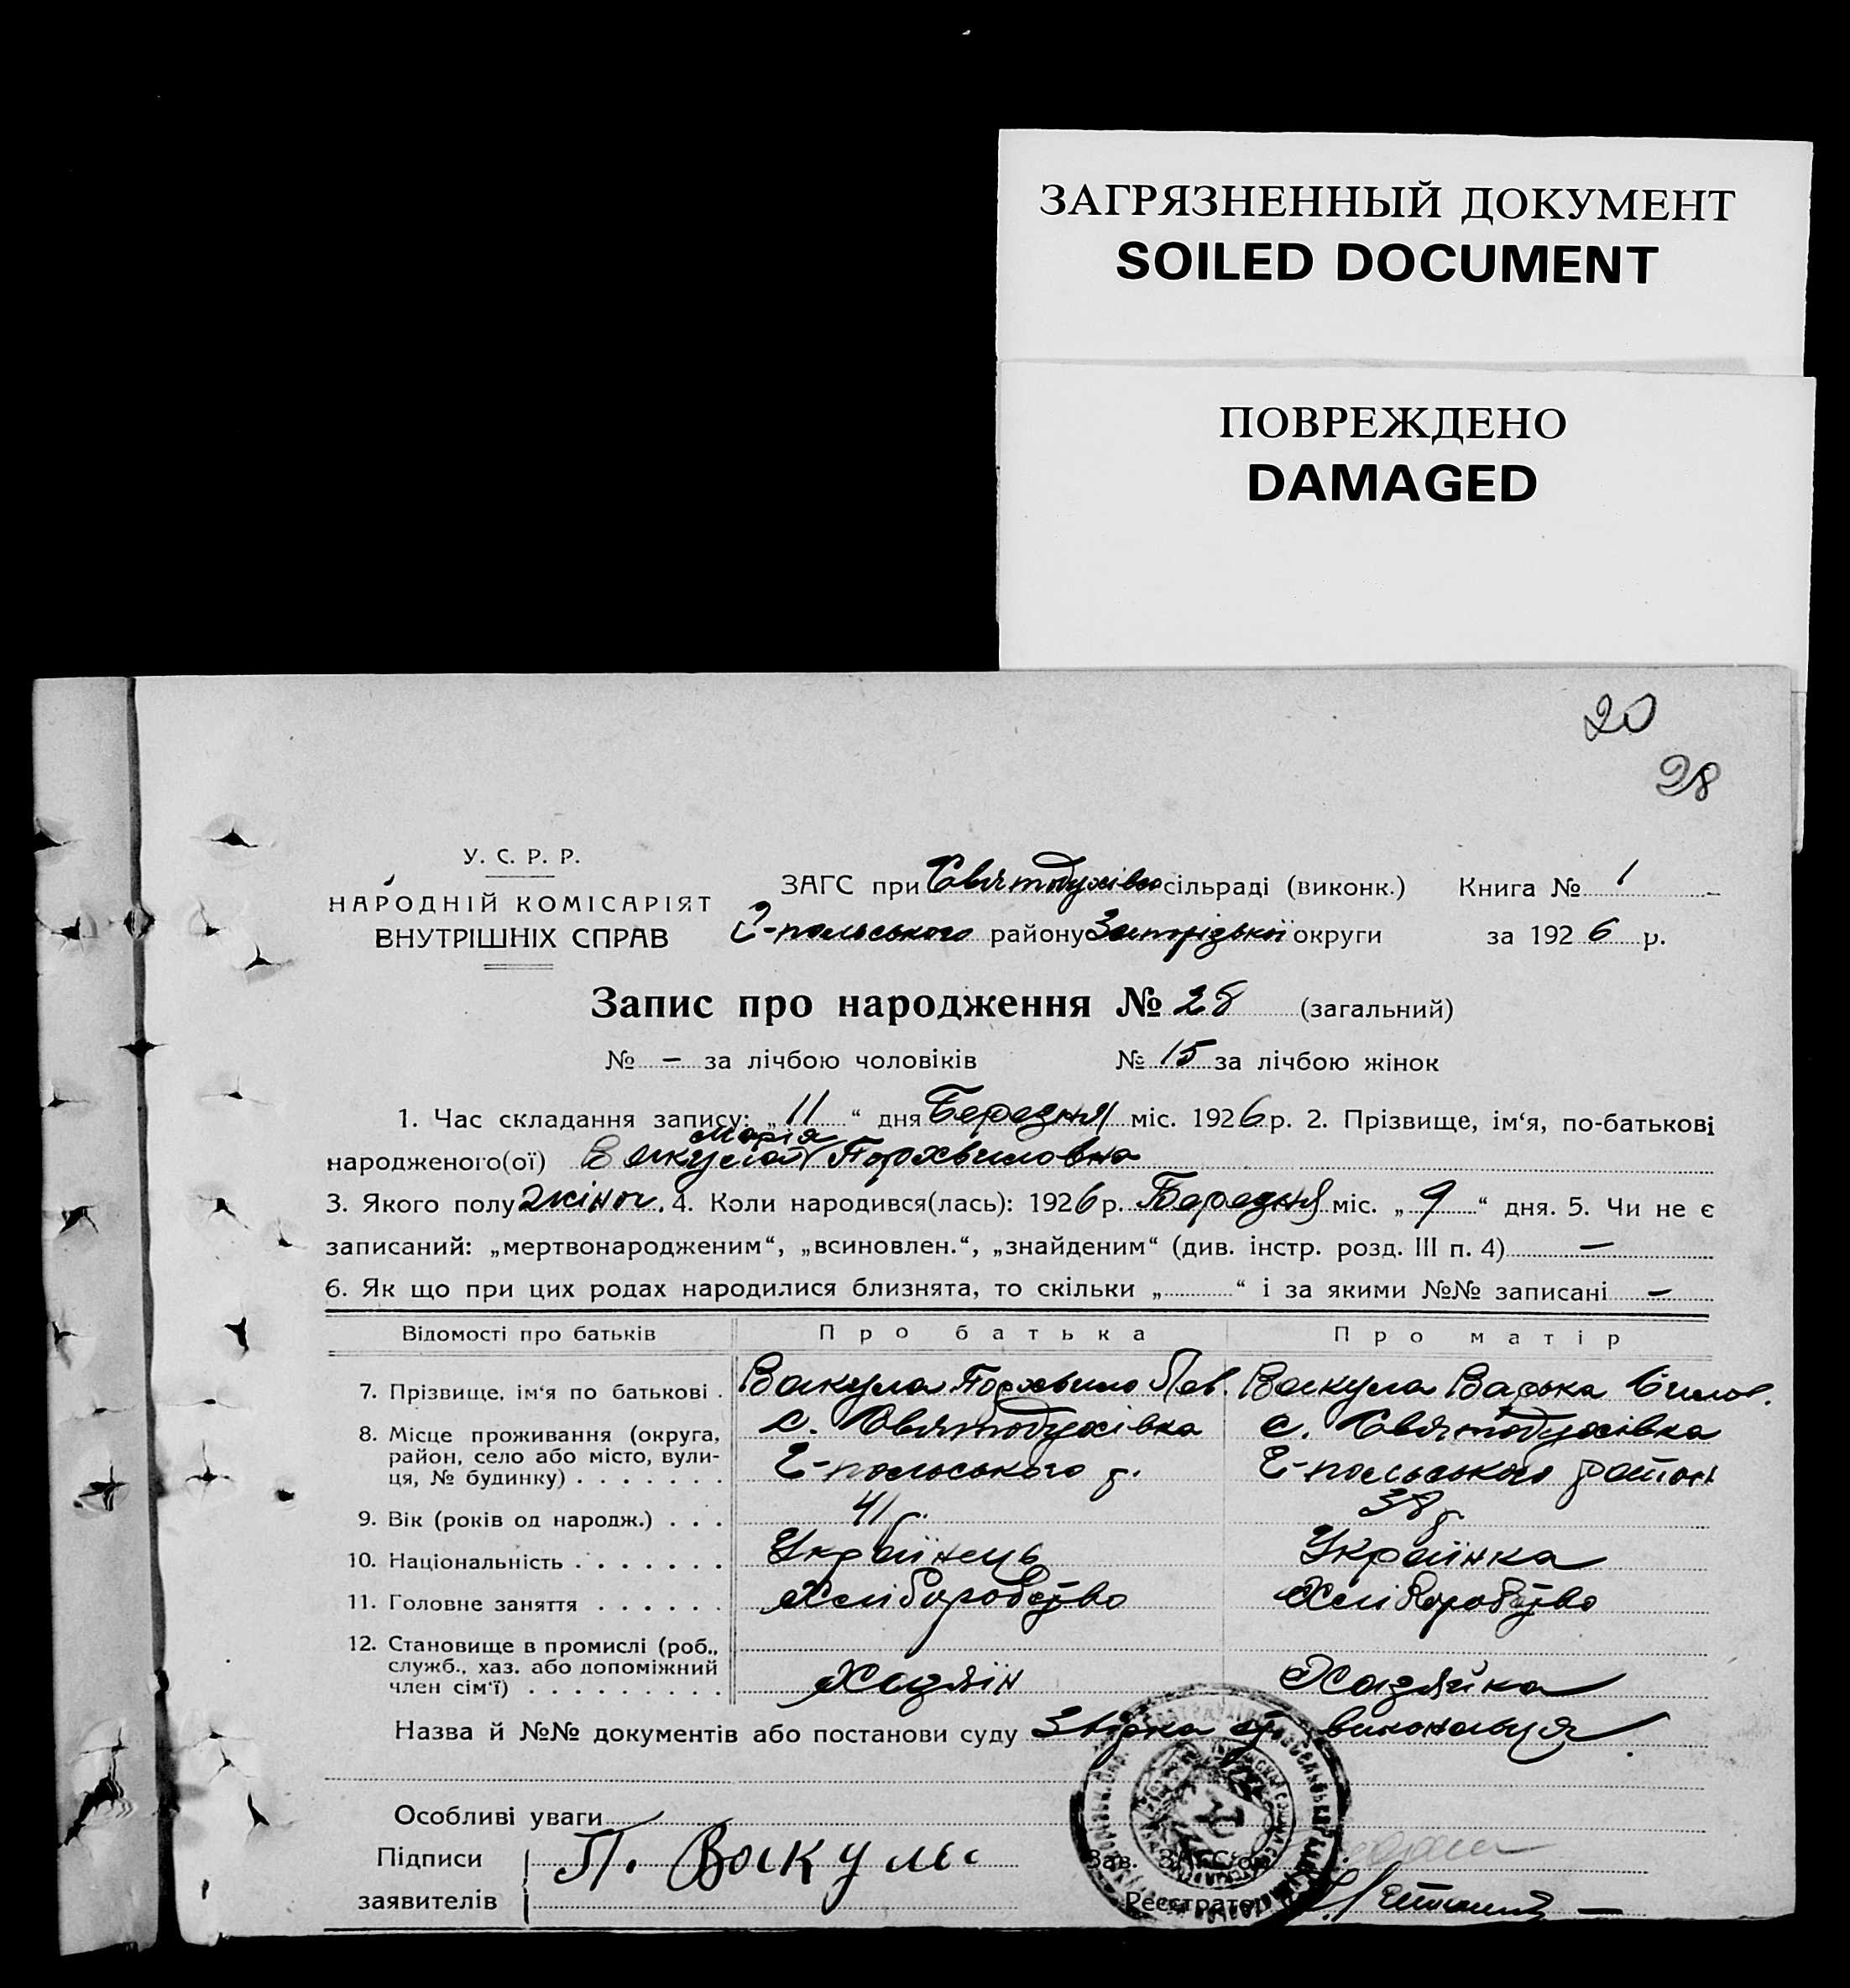 ЗАГРЯЗНЕННЫЙ ДОКУМЕНТ
SOILED DOCUMENT
ПОВРЕЖДЕНО
DAMAGED
20
28
У. С. Р. Р.
НАРОДНІЙ КОМІСАРІЯТ
ВНУТРІШНІХ СПРАВ
ЗАГС при Святодухівко сільраді (виконк.) Книга № 1
-польського району Запорізької округи за 1926 р.
Запис про народження № 28 (загальний)
№ — за лічбою чоловіків № 15 за лічбою жінок
1. Час складання запису: „11“ дня Березня міс. 1926 р. 2. Прізвище, ім‘я, по-батькові
Марія
народженого(ої) Вакула Порхвиловна
3. Якого полу жіноч. 4. Коли народився(лась): 1926 р. Березня міс. „9“ дня. 5. Чи не є
записаний: „мертвонародженим“, „всиновлен.“, „знайденим“ (див. інстр. розд. III п. 4) —
6. Як що при цих родах народилися близнята, то скільки „ “ і за якими №№ записані —
Відомості про батьків Про батька Про матір
7. Прізвище, ім‘я по батькові . Вакула Порхвило Пав. Вакула Варька
8. Місце проживання (округа, с. Святодухівка с. Святодухівка
район, село або місто, вули-
ця, № будинку) . . . . . . . -польського р. -польського район
9. Вік (років од народж.) . . . 41 р. 38 р.
10. Національність . . . . . . . Українець Українка
11. Головне заняття . . . . . . Хліборобство Хліборобство
12. Становище в промислі (роб.,
служб., хаз. або допоміжний
член сім‘ї) . . . . . . . . . Хазяїн Хазяйка
Назва й №№ документів або постанови суду виконавця.
Особливі уваги
Підписи П. Вакула
заявителів
Зав. ЗАГС‘ом
Реєстратор